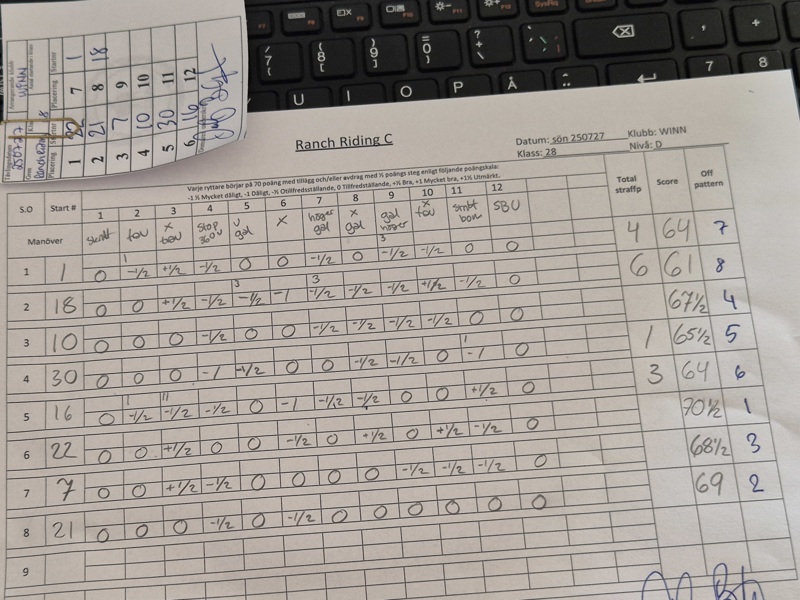 Ranch Riding C
Datum: sön 250727 Klubb: WINN
Klass: 28 Nivå: D
Varje ryttare börjar på 70 poäng med tillägg och/eller avdrag med ½ poängs steg enligt följande poängskala:
-1 ½ Mycket dåligt, -1 Dåligt, -½ Otillfredsställande, 0 Tillfredställande, +½ Bra, +1 Mycket bra, +1½ Utmärkt.
S.O Start # 1 2 3 4 5 6 7 8 9 10 11 12 Total straffp Score Off pattern
Manöver skritt tov x bom stop 360v v gal x höger gal x gal gal höger x tov skritt bom SBU
1 1 0 -1/2 +1/2 -1/2 0 0 -1/2 0 -1/2 -1/2 0 0 4 64 7
2 18 0 0 +1/2 -1/2 -1/2 -1 -1/2 -1/2 -1/2 +1/2 -1/2 0 6 61 8
3 10 0 0 0 -1/2 0 0 -1/2 -1/2 -1/2 -1/2 0 0 67½ 4
4 30 0 0 0 -1 -1/2 0 0 -1/2 -1/2 0 -1 0 1 65½ 5
5 16 0 -1/2 -1/2 -1/2 0 -1 -1/2 -1/2 0 0 +1/2 0 3 64 6
6 22 0 0 +1/2 0 0 -1/2 0 +1/2 0 +1/2 -1/2 0 70½ 1
7 7 0 0 +1/2 -1/2 0 0 0 0 -1/2 -1/2 -1/2 0 68½ 3
8 21 0 0 0 -1/2 0 -1/2 0 0 0 0 0 0 69 2
9
250727 WINN
Ranch Riding 8
Placering Startnr Placering Startnr
1 22 7 1
2 21 8 18
3 7 9
4 10 10
5 30 11
6 16 12
U I O P Å
7 8